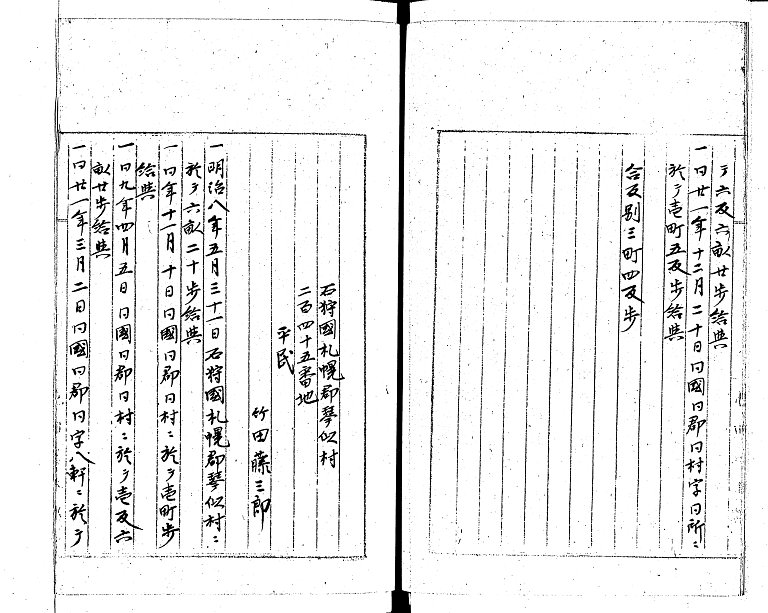 テ六反六畝廿歩給與
一仝廿一年十二月二十日仝國仝郡仝村字仝所ニ
於テ壱町五反歩給與
合反別三町四反歩
石狩國札幌郡琴似村
二百四十五番地
平民
竹田藤三郎
一明治八年五月三十一日石狩國札幌郡琴似村ニ
於テ六畝二十歩給與
一仝年十一月十日仝國仝郡仝村ニ於テ壱町歩
給與
一仝九年四月五日仝國仝郡仝村ニ於テ壱反六
畝廿歩給與
一仝廿一年三月二日仝國仝郡仝字八軒ニ於テ